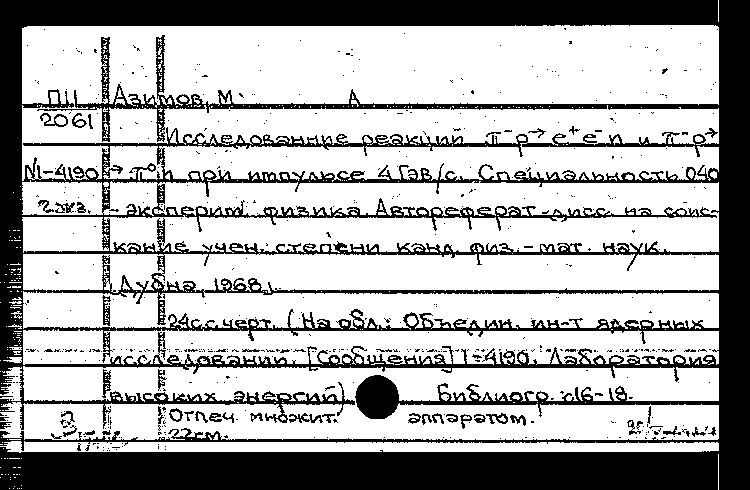 П11 Азимов, М. А
2061
Исследование реакций π⁻p→e⁺e⁻n и π⁻p→
№1-4190 →π⁰n при импульсе 4 Гэв/с. Специальность 040
2 экз. - эксперим. физика. Автореферат дисс. на соис-
кание учен. степени канд. физ.-мат. наук.
[Дубна, 1968].
24с. с черт. (На обл.: Объедин. ин-т ядерных
исследований. [Сообщения] 1-4190. Лаборатория
высоких энергий) Библиогр. с16-18.
Отпеч. множит. аппаратом.
22см.